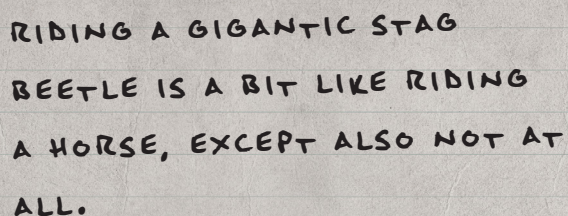 RIDING A GIGANTIC STAG
BEETLE IS A BIT LIKE RIDING
A HORSE, EXCEPT ALSO NOT AT
ALL.